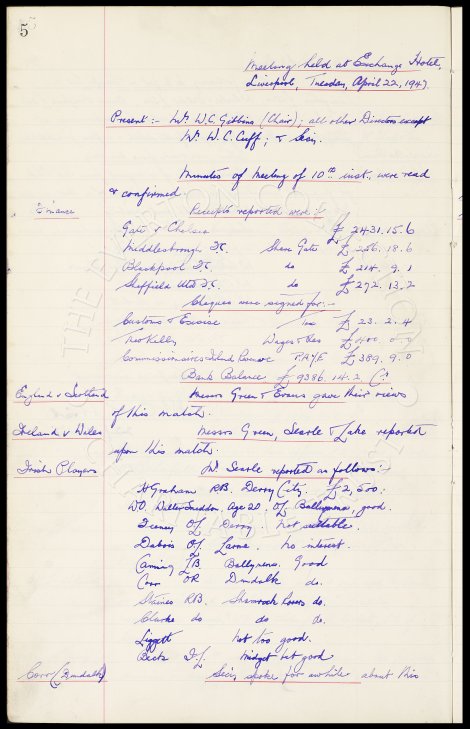 5
Meeting held at Exchange Hotel,
Liverpool, Tuesday, April 22, 1947.
Present :- Mr. W.C. Gibbins (Chair); all other Directors except
Mr. W.C. Cuff; & Secy.
Minutes of Meeting of 10th inst., were read
& confirmed.
Finance Receipts reported were :-
Gate v Chelsea £ 2431.15.6
Middlesbrough F.C. Share Gate £ 256.18.6
Blackpool F.C. do £ 214. 9. 1
Sheffield Utd F.C. do £ 292. 13. 2
Cheques were signed for :-
Customs & Excise Tax £ 23. 2. 4
Theo Kelly Wages & Exes £ 400. 0. 0
Commissioners Inland Revenue P.A.Y.E £ 389. 9. 0
Bank Balance £ 9386. 14. 2. Cr
England v Scotland Messrs Green & Evans gave their views
of this match.
Ireland v Wales Messrs Green, Searle & Lake reported
upon this match.
Irish Players Mr. Searle reported as follows :-
H Graham RB. Derry City. £2,500.
WO Walter Age 20. O/L Ballymena, good.
Feeney O/L Derry. Not suitable.
O/L Larne. No interest.
L/B Ballymena. Good
Corr OR Dundalk do.
Staines RB. Shamrock Rovers do.
Clarke do do do.
Liggett Not too good.
I/L. Midget Not good
Corr (Dundalk) Secy. spoke for awhile about this